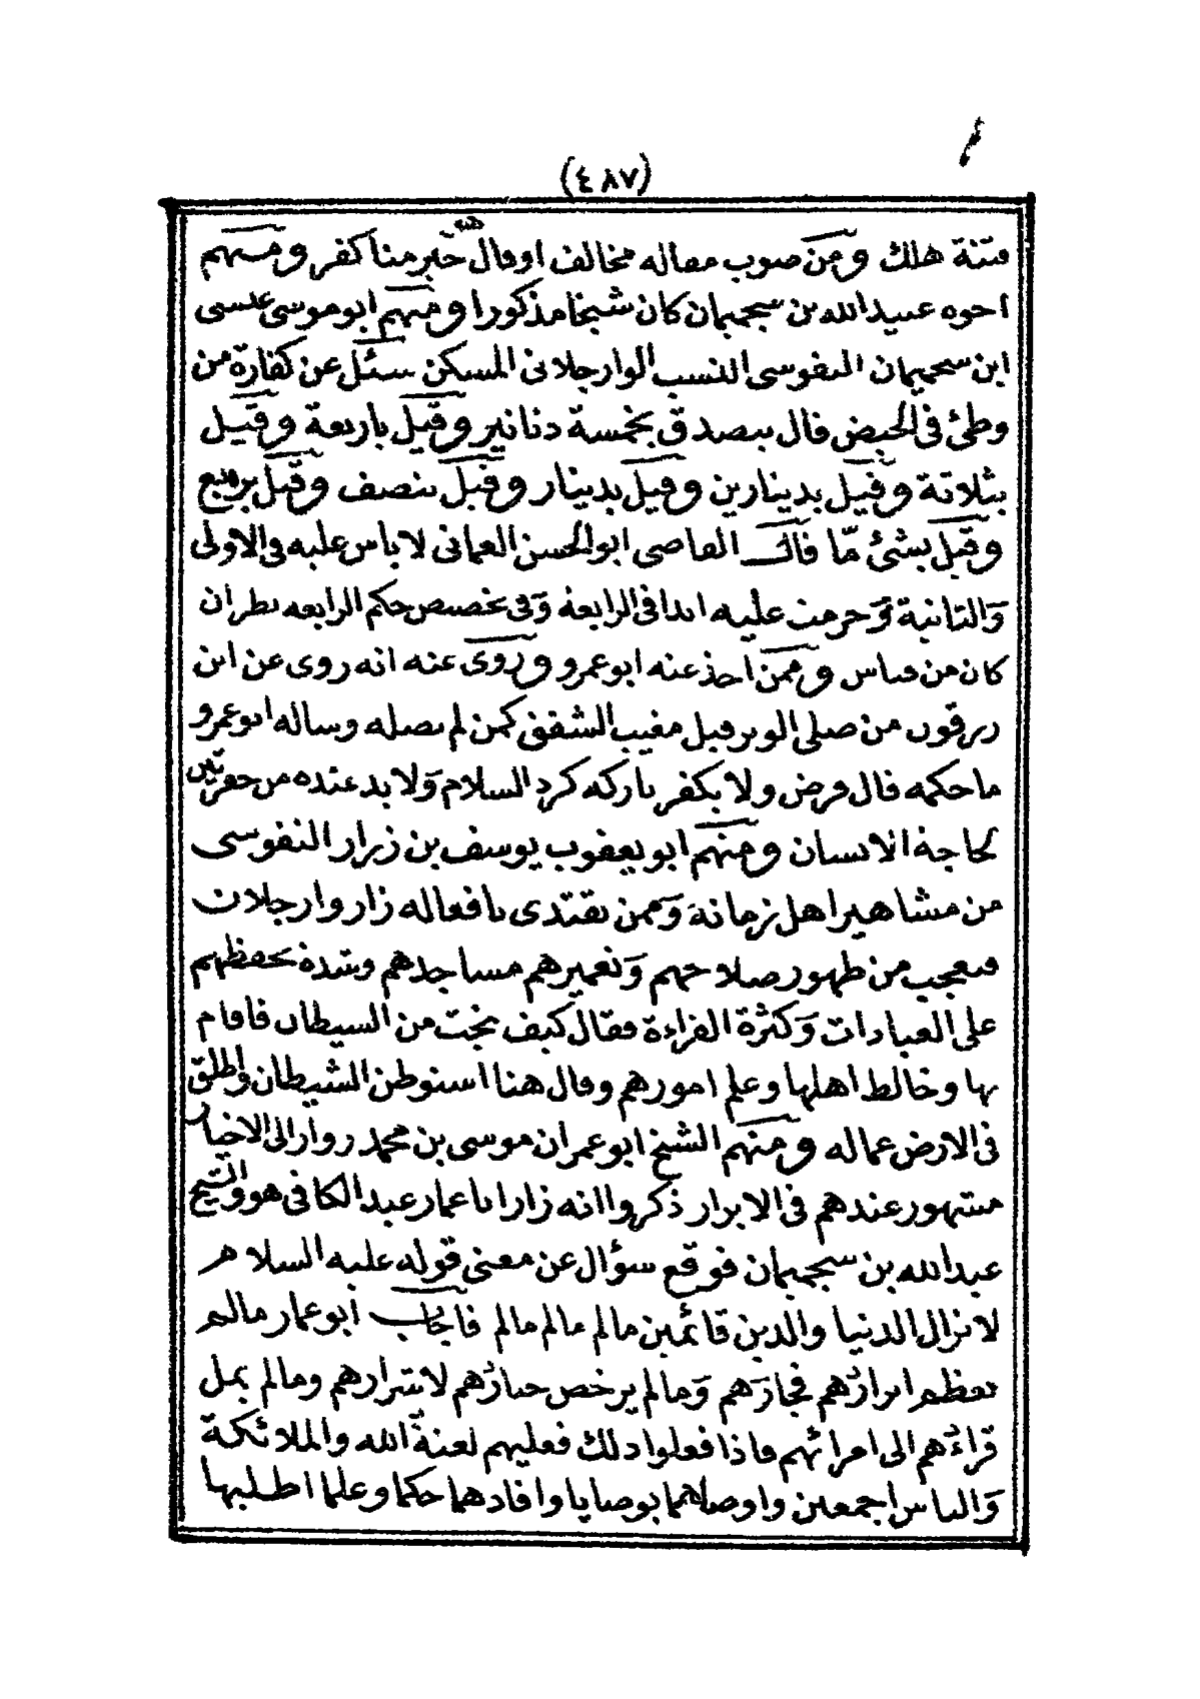 (٤٨٧)
فتنة هلك ومن صوب مقاله مخالف او قال خير منا كفر ومنهم
اخوه عبيد الله بن سجميمان كان شيخا مذكورا ومنهم ابو موسى عيسى
ابن سجميمان النفوسى النسب الوارجلانى المسكن سئل عن كفارة من
وطئ فى الحيض قال يتصدق بخمسة دنانير وقيل باربعة وقيل
بثلاثة وقيل بدينارين وقيل بدينار وقيل بنصف وقيل بربع
وقيل بشئ مّا قال القاضى ابو الحسن العمانى لا باس عليه فى الاولى
والثانية وحرمت عليه ابدا فى الرابعة وفى تخصيص حكم الرابعه نظر ان
كان من قياس وممن اخذ عنه ابو عمرو وروى عنه انه روى عن ابن
زرقون من صلى الوتر قبل مغيب الشفق كمن لم يصله وساله ابو عمرو
ما حكمه قال فرض ولا يكفر تاركه كرد السلام ولا بد عنده من حفرتين
لحاجة الانسان ومنهم ابو يعقوب يوسف بن زرار النفوسى
من مشاهير اهل زمانه وممن يقتدى بافعاله زار وارجلان
فتعجب من ظهور صلاحهم وتعميرهم مساجدهم وشدة تحفظهم
على العبادات وكثرة القراءة فقال كيف نجت من الشيطان فاقام
بها وخالط اهلها وعلم امورهم وقال هنا استوطن الشيطان واطلق
فى الارض عماله ومنهم الشيخ ابو عمران موسى بن محمد زوار الى الاخيار
مشهور عندهم فى الابرار ذكروا انه زار ابا عمار عبد الكافى هو والشيخ
عبد الله بن سجميمان فوقع سؤال عن معنى قوله عليه السلام
لا تزال الدنيا والدين قائمين مالم مالم مالم فاجاب ابو عمار مالم
تعظم ابرارهم فجارهم ومالم يرخص خيارهم لاشرارهم ومالم يمل
قراءهم الى امرائهم فاذا فعلوا ذلك فعليهم لعنة الله والملائكة
والناس اجمعين واوصاهما بوصايا وافادهما حكما وعلما اطلبها